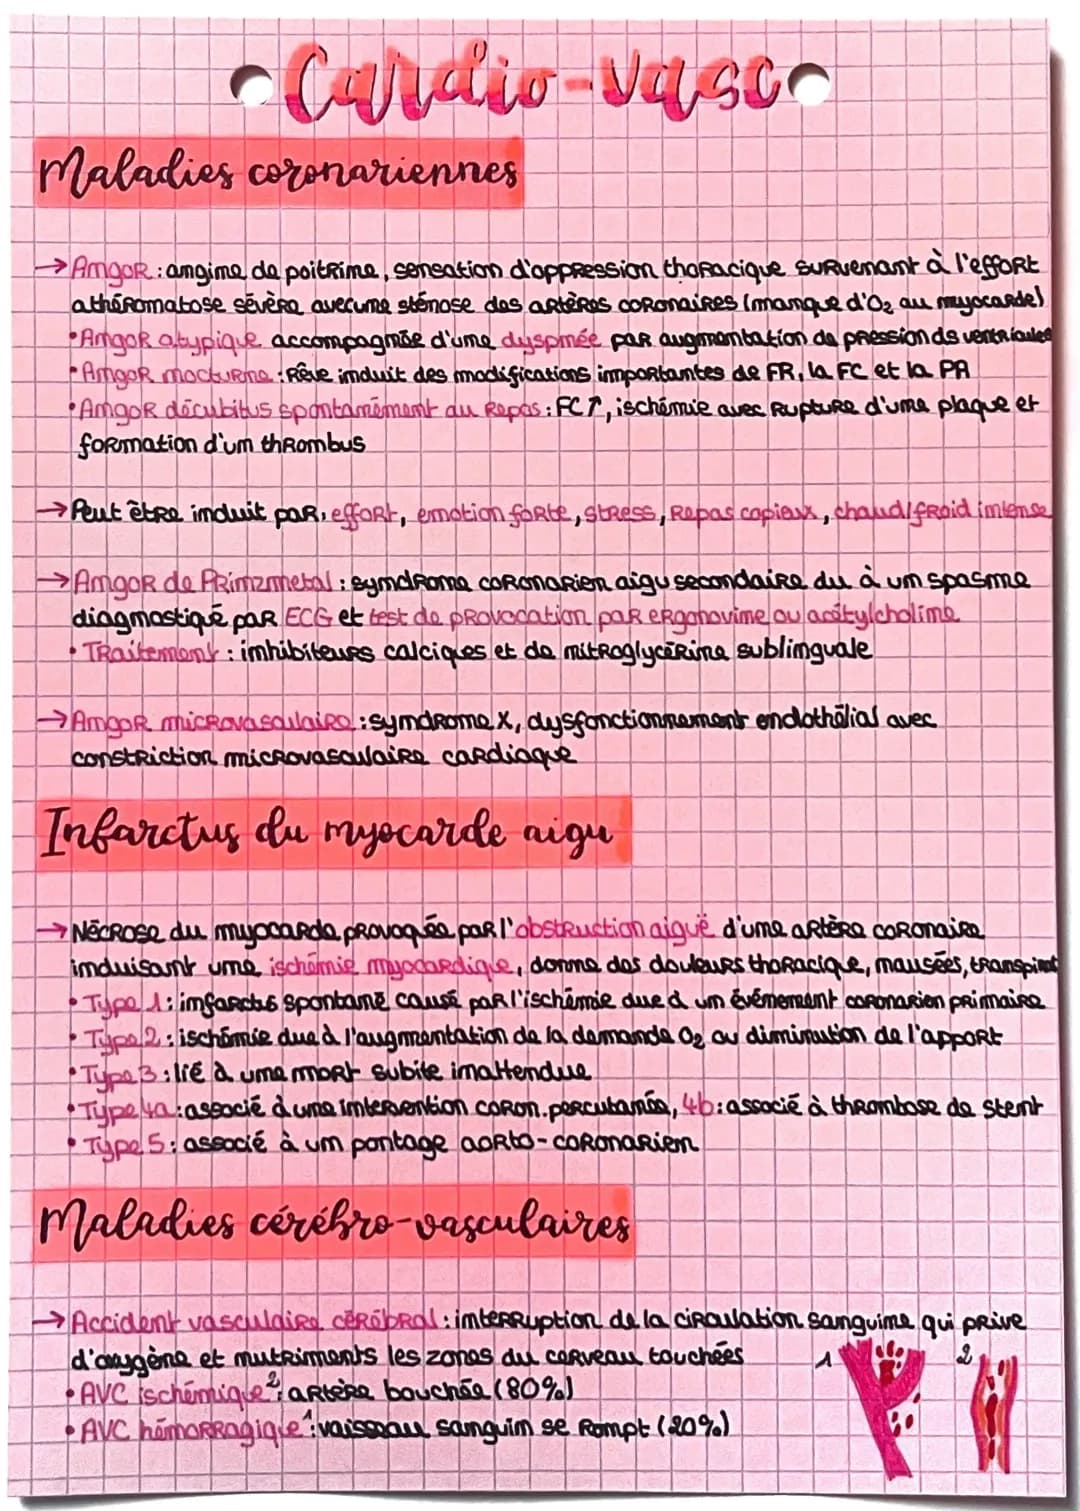 Cardio-vasc
Maladies coronariennes
→ Angor : angine de poitrine, sensation d'oppression thoracique survenant à l'effort
athéromatose sévère avec une sténose des artères coronaires (manque d'O₂ au myocarde)
• Angor atypique accompagnée d'une dyspnée par augmentation de pression ds ventricules
• Angor nocturne : Rêve induit des modifications importantes de FR, la FC et la PA
• Angor décubitus spontanément au repos : FC↑, ischémie avec rupture d'une plaque et
formation d'un thrombus
→ Peut être induit par : effort, emotion forte, stress, repas copieux, chaud/froid intense
→ Angor de Prinzmetal : syndrome coronarien aigu secondaire du à un spasme
diagnostiqué par ECG et test de provocation par ergonovine ou acétylcholine
• Traitement : inhibiteurs calciques et de nitroglycérine sublinguale
→ Angor microvasculaire : syndrome X, dysfonctionnement endothélial avec
constriction microvasculaire cardiaque
Infarctus du myocarde aigu
→ Nécrose du myocarde provoquée par l'obstruction aiguë d'une artère coronaire
induisant une ischémie myocardique, donne des douleurs thoracique, nausées, transpirat
• Type 1 : infarctus spontané causé par l'ischémie due à un événement coronarien primaire
• Type 2 : ischémie due à l'augmentation de la demande O₂ ou diminution de l'apport
• Type 3 : lié à une mort subite inattendue
• Type 4a : associé à une intervention coron. percutanée, 4b : associé à thrombose de stent
• Type 5 : associé à un pontage aorto-coronarien
Maladies cérébro-vasculaires
→ Accident vasculaire cérébral : interruption de la circulation sanguine qui prive
d'oxygène et nutriments les zones du cerveau touchées
1 2
• AVC ischémique² : artère bouchée (80%)
• AVC hémorragique¹ : vaisseau sanguin se rompt (20%)